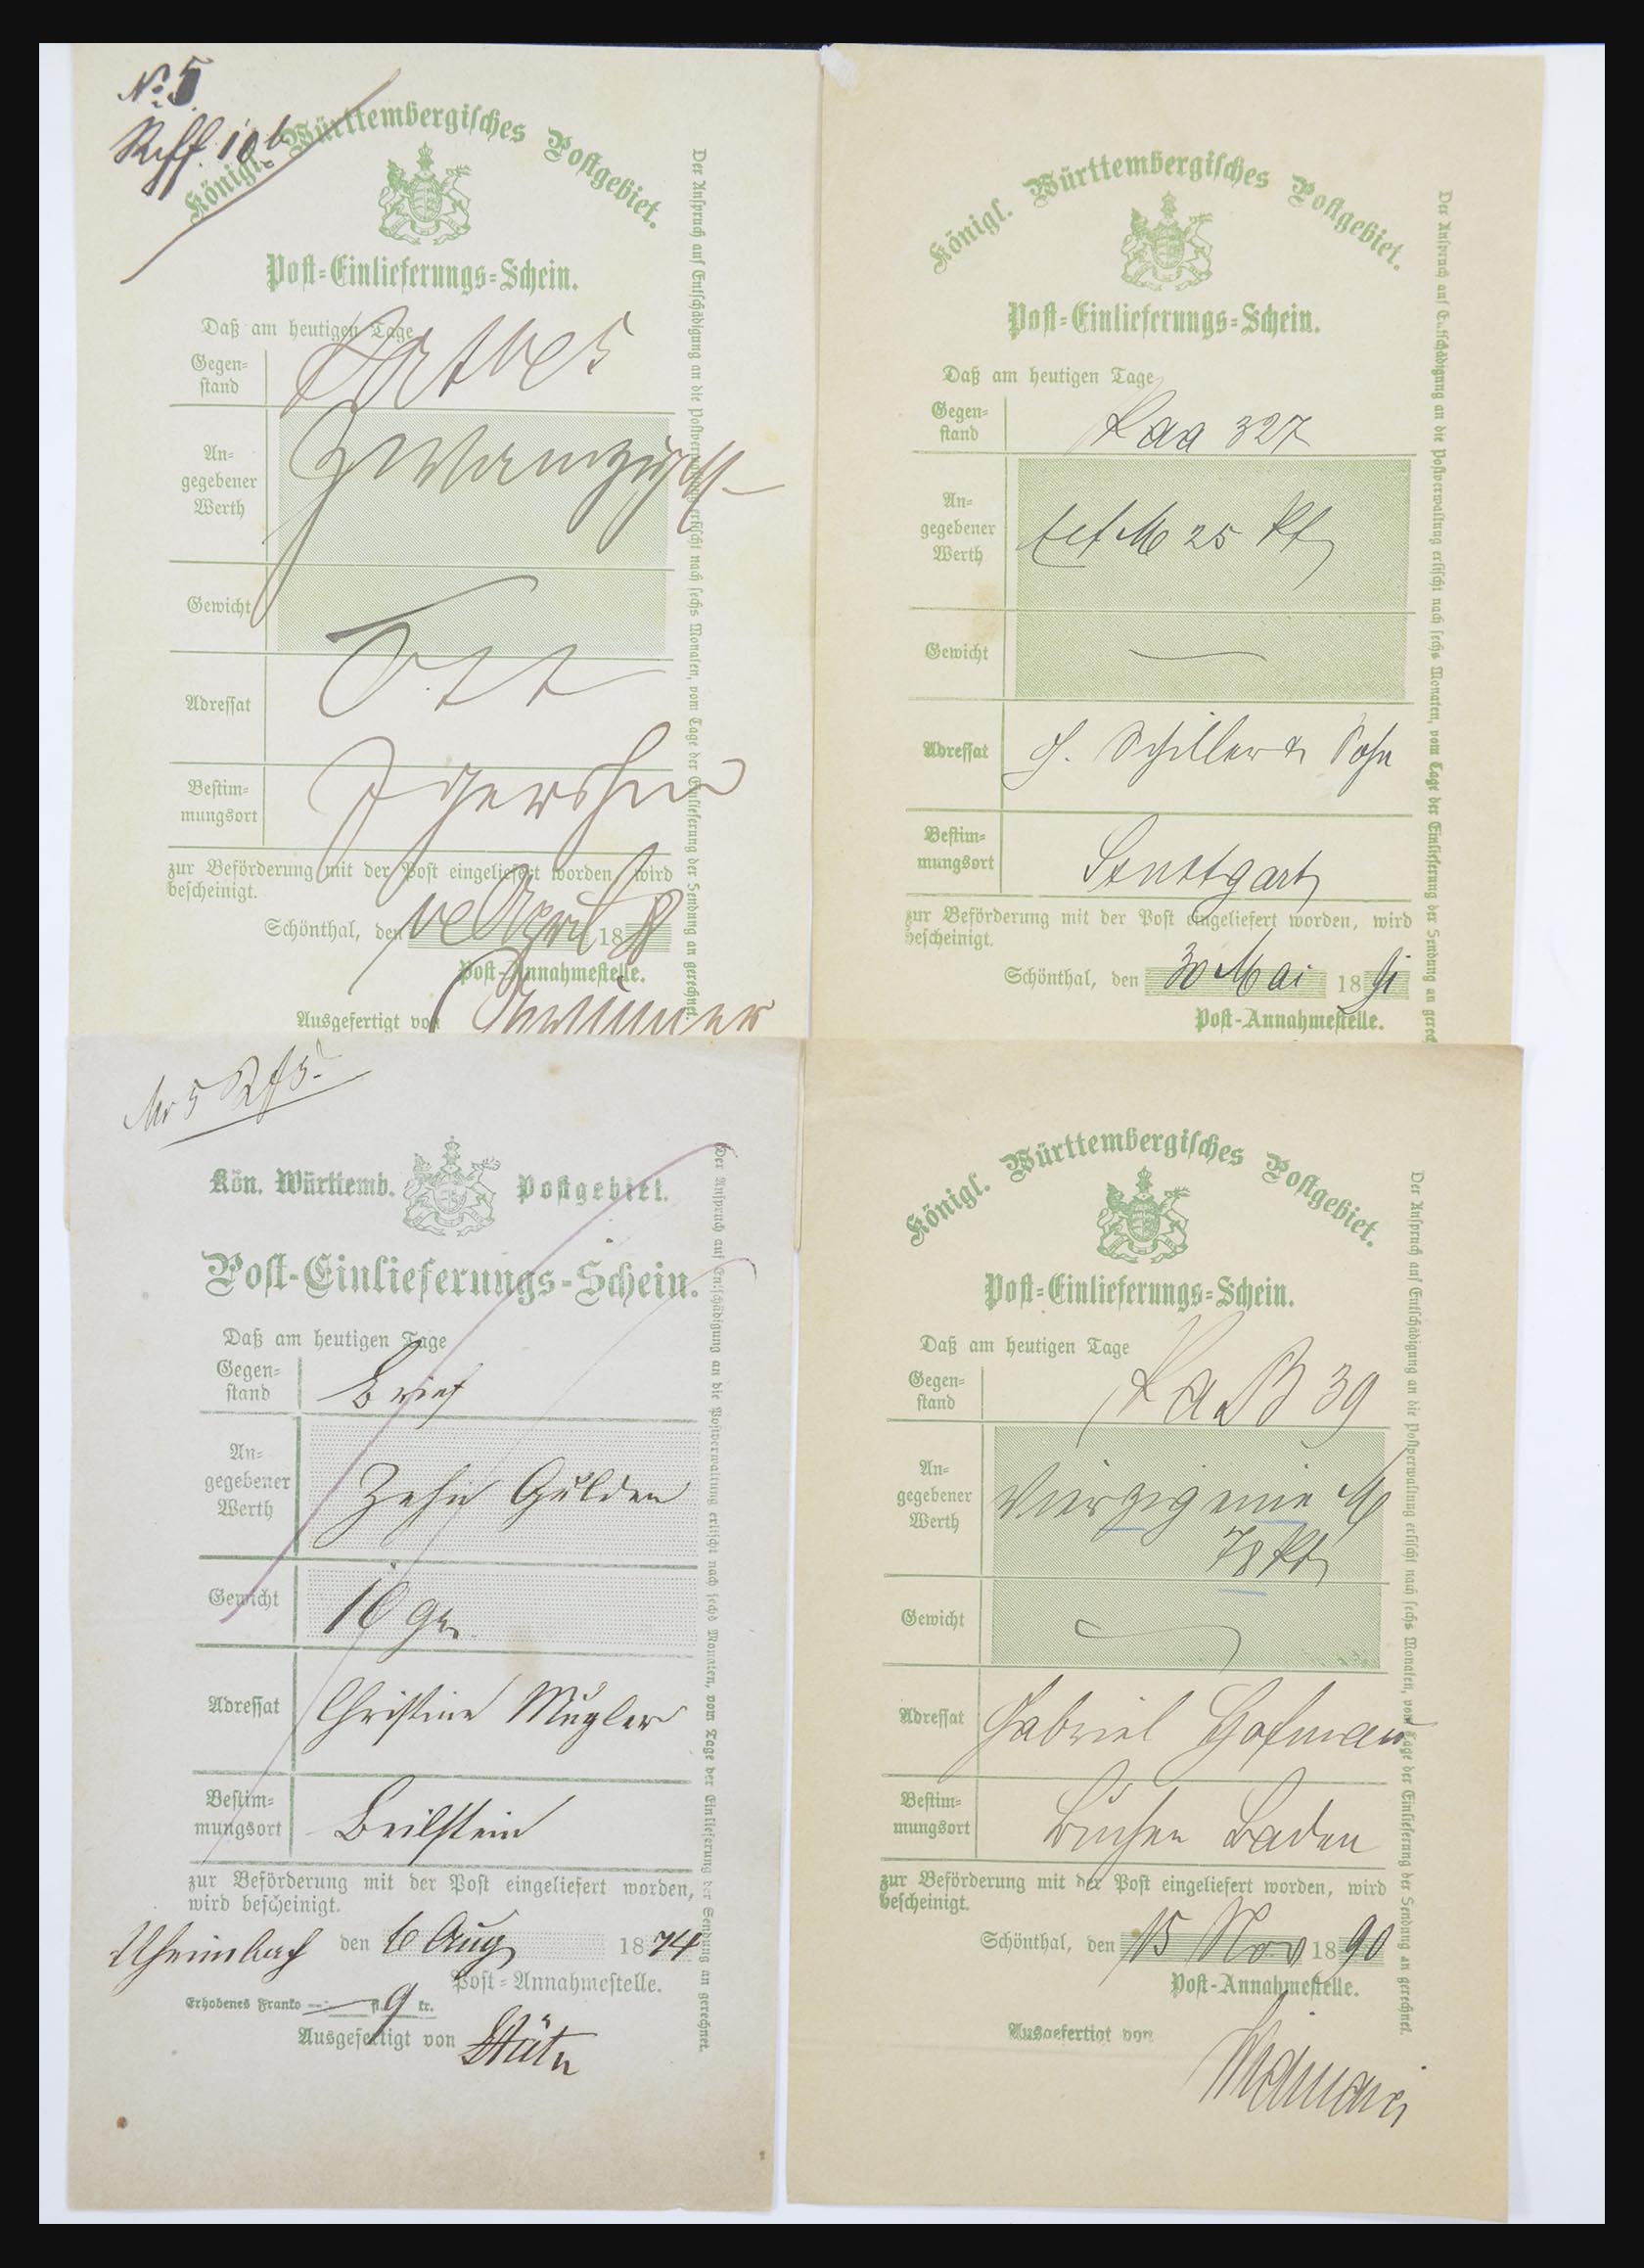 No 5.
Königl. Württembergisches Postgebiet.
Post-Einlieferungs-Schein.
Daß am heutigen Tage
Gegen-
stand
An-
gegebener
Werth
Gewicht
Adressat
Ott
Bestim-
mungsort
Igersheim
zur Beförderung mit der Post eingeliefert worden, wird
bescheinigt.
Schönthal, den April 18
Post-Annahmestelle.
Ausgefertigt von
Der Anspruch auf Entschädigung an die Postverwaltung erlischt nach sechs Monaten, vom Tage der Einlieferung der Sendung an gerechnet.
Königl. Württembergisches Postgebiet.
Post-Einlieferungs-Schein.
Daß am heutigen Tage
Gegen-
stand
327
An-
gegebener
Werth
M 25 Pf
Gewicht
Adressat
Schiller & Sohn
Bestim-
mungsort
Stuttgart
zur Beförderung mit der Post eingeliefert worden, wird
bescheinigt.
Schönthal, den 30 Mai 1891
Post-Annahmestelle.
Der Anspruch auf Entschädigung an die Postverwaltung erlischt nach sechs Monaten, vom Tage der Einlieferung der Sendung an gerech
Kön. Württemb. Postgebiet.
Post-Einlieferungs-Schein.
Daß am heutigen Tage
Gegen-
stand
Brief
An-
gegebener
Werth
Zehn Gulden
Gewicht
10 gr.
Adressat
Christine Mugler
Bestim-
mungsort
Beilstein
zur Beförderung mit der Post eingeliefert worden,
wird bescheinigt.
den 6 Aug 1874
Post-Annahmestelle.
Erhobenes Franko — fl. 9 kr.
Ausgefertigt von
Der Anspruch auf Entschädigung an die Postverwaltung erlischt nach sechs Monaten, vom Tage der Einlieferung der Sendung an gerechnet.
Königl. Württembergisches Postgebiet.
Post-Einlieferungs-Schein.
Daß am heutigen Tage
Gegen-
stand
39
An-
gegebener
Werth
Vierzig eine M
78 Pf
Gewicht
Adressat
Gabriel Hofmann
Bestim-
mungsort
Buchen Baden
zur Beförderung mit der Post eingeliefert worden, wird
bescheinigt.
Schönthal, den 15 Nov 1890
Post-Annahmestelle.
Ausgefertigt von
Der Anspruch auf Entschädigung an die Postverwaltung erlischt nach sechs Monaten, vom Tage der Einlieferung der Sendung an gerechnet.